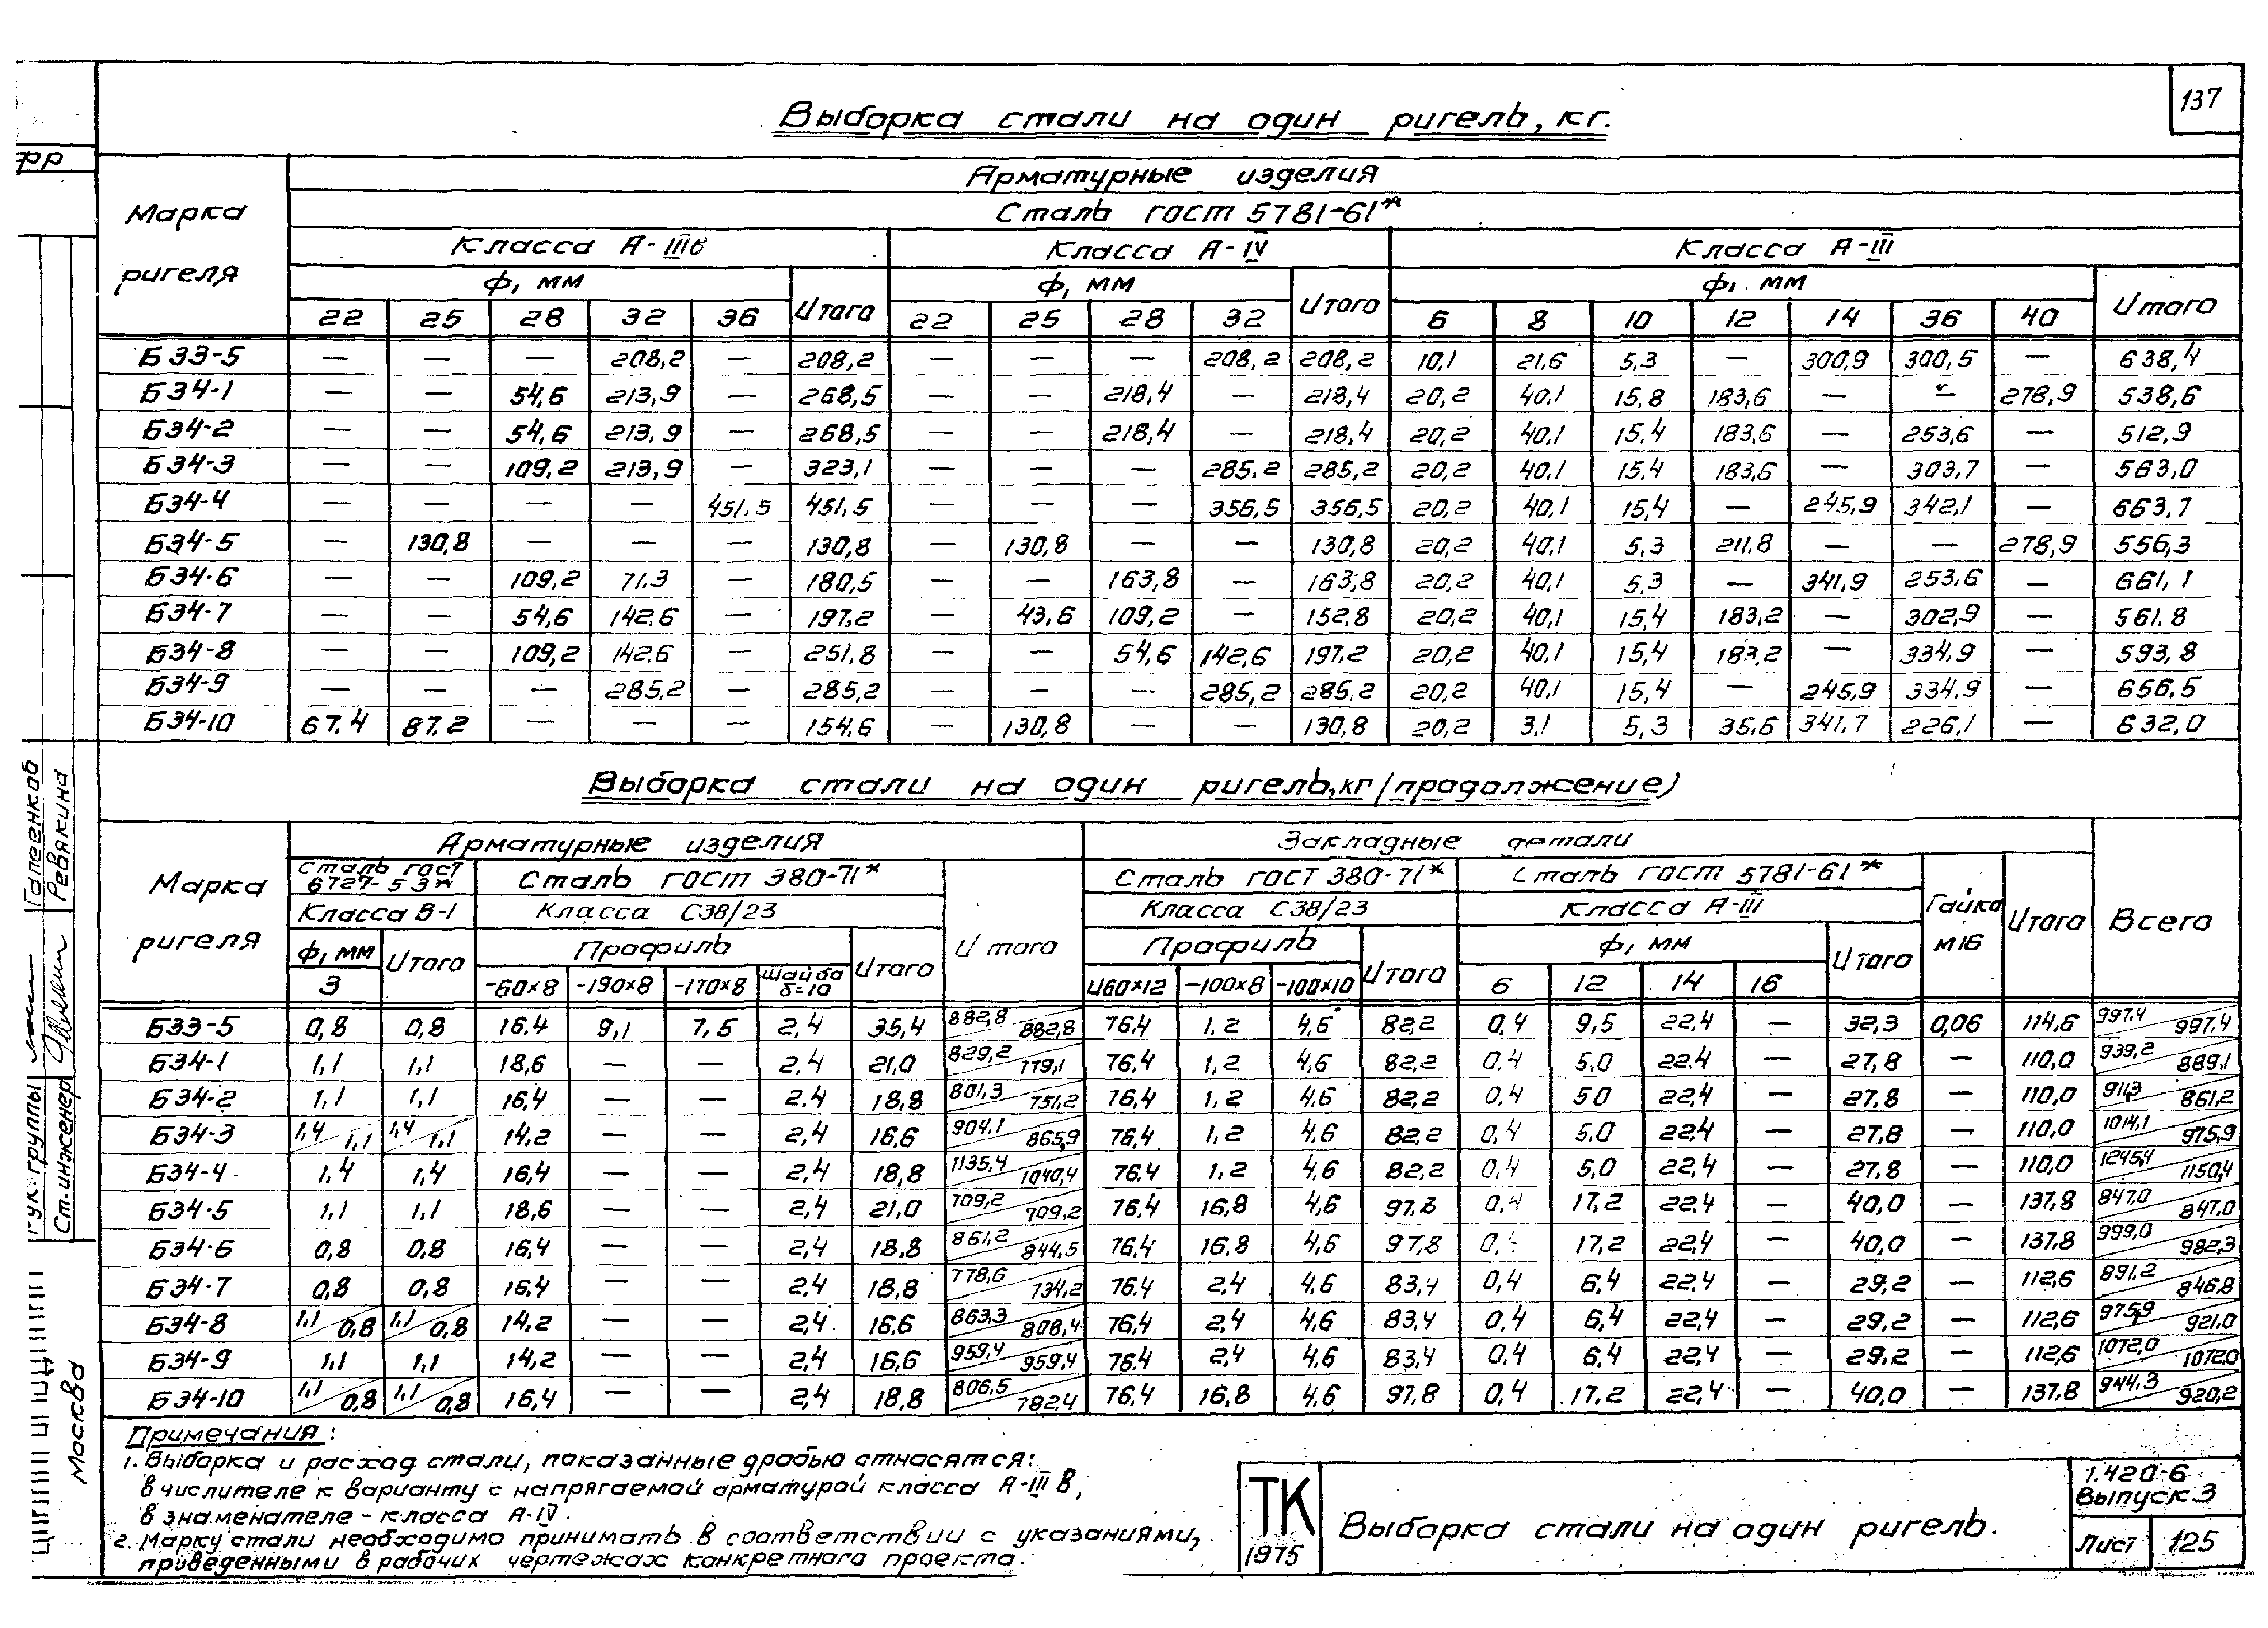 137
Выборка стали на один ригель, кг.
Марка ригеля
Арматурные изделия
Сталь ГОСТ 5781-61*
Класса А-IIIв Класса А-IV Класса А-III
ф, мм Итого ф, мм Итого ф, мм Итого
22 25 28 32 36 22 25 28 32 6 8 10 12 14 36 40
БЭЭ-5 — — — 208,2 — 208,2 — — — 208,2 208,2 10,1 21,6 5,3 — 300,9 300,5 — 638,4
БЭ4-1 — — 54,6 213,9 — 268,5 — — 218,4 — 218,4 20,2 40,1 15,8 183,6 — — 278,9 538,6
БЭ4-2 — — 54,6 213,9 — 268,5 — — 218,4 — 218,4 20,2 40,1 15,4 183,6 — 253,6 — 512,9
БЭ4-3 — — 109,2 213,9 — 323,1 — — — 285,2 285,2 20,2 40,1 15,4 183,6 — 303,7 — 563,0
БЭ4-4 — — — — 451,5 451,5 — — — 356,5 356,5 20,2 40,1 15,4 — 245,9 342,1 — 663,7
БЭ4-5 — 130,8 — — — 130,8 — 130,8 — — 130,8 20,2 40,1 5,3 211,8 — — 278,9 556,3
БЭ4-6 — — 109,2 71,3 — 180,5 — — 163,8 — 163,8 20,2 40,1 5,3 — 341,9 253,6 — 661,1
БЭ4-7 — — 54,6 142,6 — 197,2 — 43,6 109,2 — 152,8 20,2 40,1 15,4 183,2 — 302,9 — 561,8
БЭ4-8 — — 109,2 142,6 — 251,8 — — 54,6 142,6 197,2 20,2 40,1 15,4 183,2 — 334,9 — 593,8
БЭ4-9 — — — 285,2 — 285,2 — — — 285,2 285,2 20,2 40,1 15,4 — 245,9 334,9 — 656,5
БЭ4-10 67,4 87,2 — — — 154,6 — 130,8 — — 130,8 20,2 3,1 5,3 35,6 341,7 226,1 — 632,0
Выборка стали на один ригель, кг (продолжение)
Марка ригеля
Арматурные изделия Закладные детали Всего
Сталь ГОСТ 6727-53* Сталь ГОСТ 380-71* Итого Сталь ГОСТ 380-71* Сталь ГОСТ 5781-61* Гайка М16 Итого
Класса В-I Класса С38/23 Класса С38/23 Класса А-III
ф, мм Итого Профиль Итого Профиль Итого ф, мм Итого
3 -60×8 -190×8 -170×8 шайба δ=10 Ц60×12 -100×8 -100×10 6 12 14 16
БЭЭ-5 0,8 0,8 16,4 9,1 7,5 2,4 35,4 882,8/882,8 76,4 1,2 4,6 82,2 0,4 9,5 22,4 — 32,3 0,06 114,6 997,4/997,4
БЭ4-1 1,1 1,1 18,6 — — 2,4 21,0 829,2/779,1 76,4 1,2 4,6 82,2 0,4 5,0 22,4 — 27,8 — 110,0 939,2/889,1
БЭ4-2 1,1 1,1 16,4 — — 2,4 18,8 801,3/751,2 76,4 1,2 4,6 82,2 0,4 5,0 22,4 — 27,8 — 110,0 911,3/861,2
БЭ4-3 1,4/1,1 1,4/1,1 14,2 — — 2,4 16,6 904,1/865,9 76,4 1,2 4,6 82,2 0,4 5,0 22,4 — 27,8 — 110,0 1014,1/975,9
БЭ4-4 1,4 1,4 16,4 — — 2,4 18,8 1135,4/1040,4 76,4 1,2 4,6 82,2 0,4 5,0 22,4 — 27,8 — 110,0 1245,4/1150,4
БЭ4-5 1,1 1,1 18,6 — — 2,4 21,0 709,2/709,2 76,4 16,8 4,6 97,8 0,4 17,2 22,4 — 40,0 — 137,8 847,0/847,0
БЭ4-6 0,8 0,8 16,4 — — 2,4 18,8 861,2/844,5 76,4 16,8 4,6 97,8 0,4 17,2 22,4 — 40,0 — 137,8 999,0/982,3
БЭ4-7 0,8 0,8 16,4 — — 2,4 18,8 778,6/734,2 76,4 2,4 4,6 83,4 0,4 6,4 22,4 — 29,2 — 112,6 891,2/846,8
БЭ4-8 1,1/0,8 1,1/0,8 14,2 — — 2,4 16,6 863,3/808,4 76,4 2,4 4,6 83,4 0,4 6,4 22,4 — 29,2 — 112,6 975,9/921,0
БЭ4-9 1,1 1,1 14,2 — — 2,4 16,6 959,4/959,4 76,4 2,4 4,6 83,4 0,4 6,4 22,4 — 29,2 — 112,6 1072,0/1072,0
БЭ4-10 1,1/0,8 1,1/0,8 16,4 — — 2,4 18,8 806,5/782,4 76,4 16,8 4,6 97,8 0,4 17,2 22,4 — 40,0 — 137,8 944,3/920,2
Примечания:
1. Выборка и расход стали, показанные дробью относятся:
в числителе к варианту с напрягаемой арматурой класса А-IIIв,
в знаменателе - класса А-IV.
2. Марку стали необходимо принимать в соответствии с указаниями,
приведенными в рабочих чертежах конкретного проекта.
ТК
1975
Выборка стали на один ригель.
1.420-6
Выпуск 3
Лист 125
рук. группы Гапеенков
Ст. инженер Ревякина
Москва